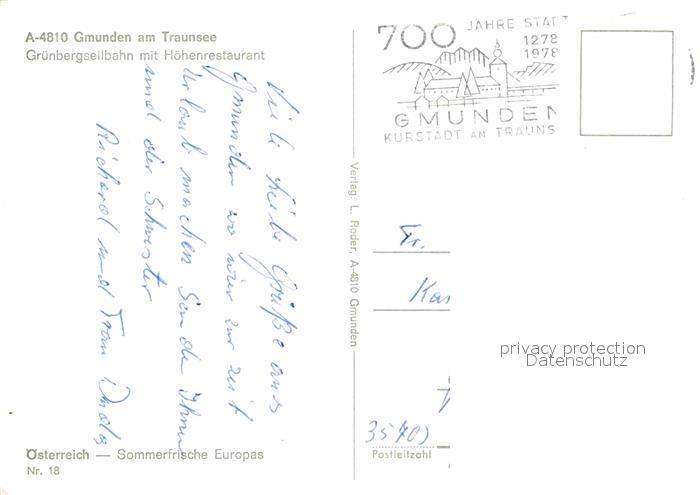 A-4810 Gmunden am Traunsee
Grünbergseilbahn mit Höhenrestaurant
Viele liebe Grüße aus
Gmunden wo wier zur zeit
Urlaub machen Sende Ihnen
und der Schwester
Richard und Frau
Österreich — Sommerfrische Europas
Nr. 18
Verlag: L. Roder, A-4810 Gmunden
700 JAHRE STADT
1278
1978
GMUNDEN
KURSTADT AM TRAUNS
Fr.
Kas
privacy protection
Datenschutz
Postleitzahl